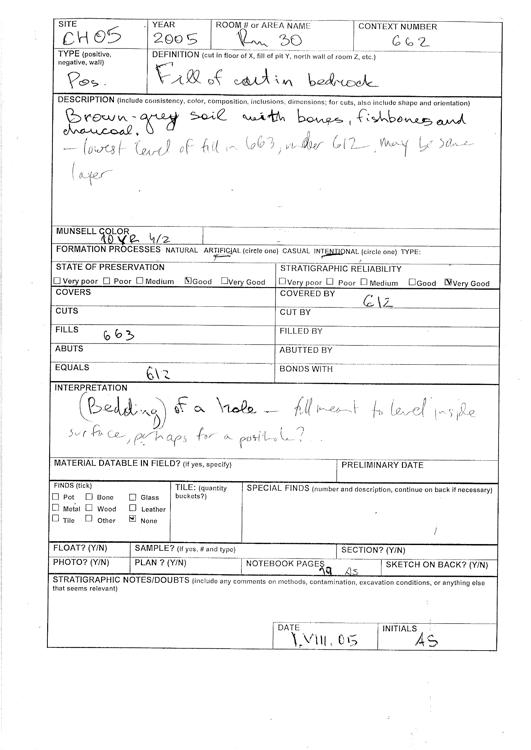 SITE YEAR ROOM # or AREA NAME CONTEXT NUMBER
CH05 2005 Rm 30 662
TYPE (positive, negative, wall) DEFINITION (cut in floor of X, fill of pit Y, north wall of room Z, etc.)
Pos. Fill of cut in bedrock
DESCRIPTION (include consistency, color, composition, inclusions, dimensions; for cuts, also include shape and orientation)
Brown-grey soil with bones, fishbones and
charcoal.
– lowest level of fill in 663, under 612, may be same
layer
MUNSELL COLOR
10 YR 4/2
FORMATION PROCESSES NATURAL ARTIFICIAL (circle one) CASUAL INTENTIONAL (circle one) TYPE:
STATE OF PRESERVATION STRATIGRAPHIC RELIABILITY
☐Very poor ☐ Poor ☐ Medium ☑Good ☐Very Good ☐Very poor ☐ Poor ☐ Medium ☐Good ☑Very Good
COVERS COVERED BY 612
CUTS CUT BY
FILLS 663 FILLED BY
ABUTS ABUTTED BY
EQUALS 612 BONDS WITH
INTERPRETATION
(Bedding) of a hole – fill meant to level inside
surface, perhaps for a posthole?
MATERIAL DATABLE IN FIELD? (If yes, specify) PRELIMINARY DATE
FINDS (tick) TILE: (quantity buckets?) SPECIAL FINDS (number and description, continue on back if necessary)
☐ Pot ☐ Bone ☐ Glass
☐ Metal ☐ Wood ☐ Leather
☐ Tile ☐ Other ☑ None
FLOAT? (Y/N) SAMPLE? (if yes, # and type) SECTION? (Y/N)
PHOTO? (Y/N) PLAN ? (Y/N) NOTEBOOK PAGES 29 AS SKETCH ON BACK? (Y/N)
STRATIGRAPHIC NOTES/DOUBTS (include any comments on methods, contamination, excavation conditions, or anything else
that seems relevant)
DATE INITIALS
1.VIII.05 AS